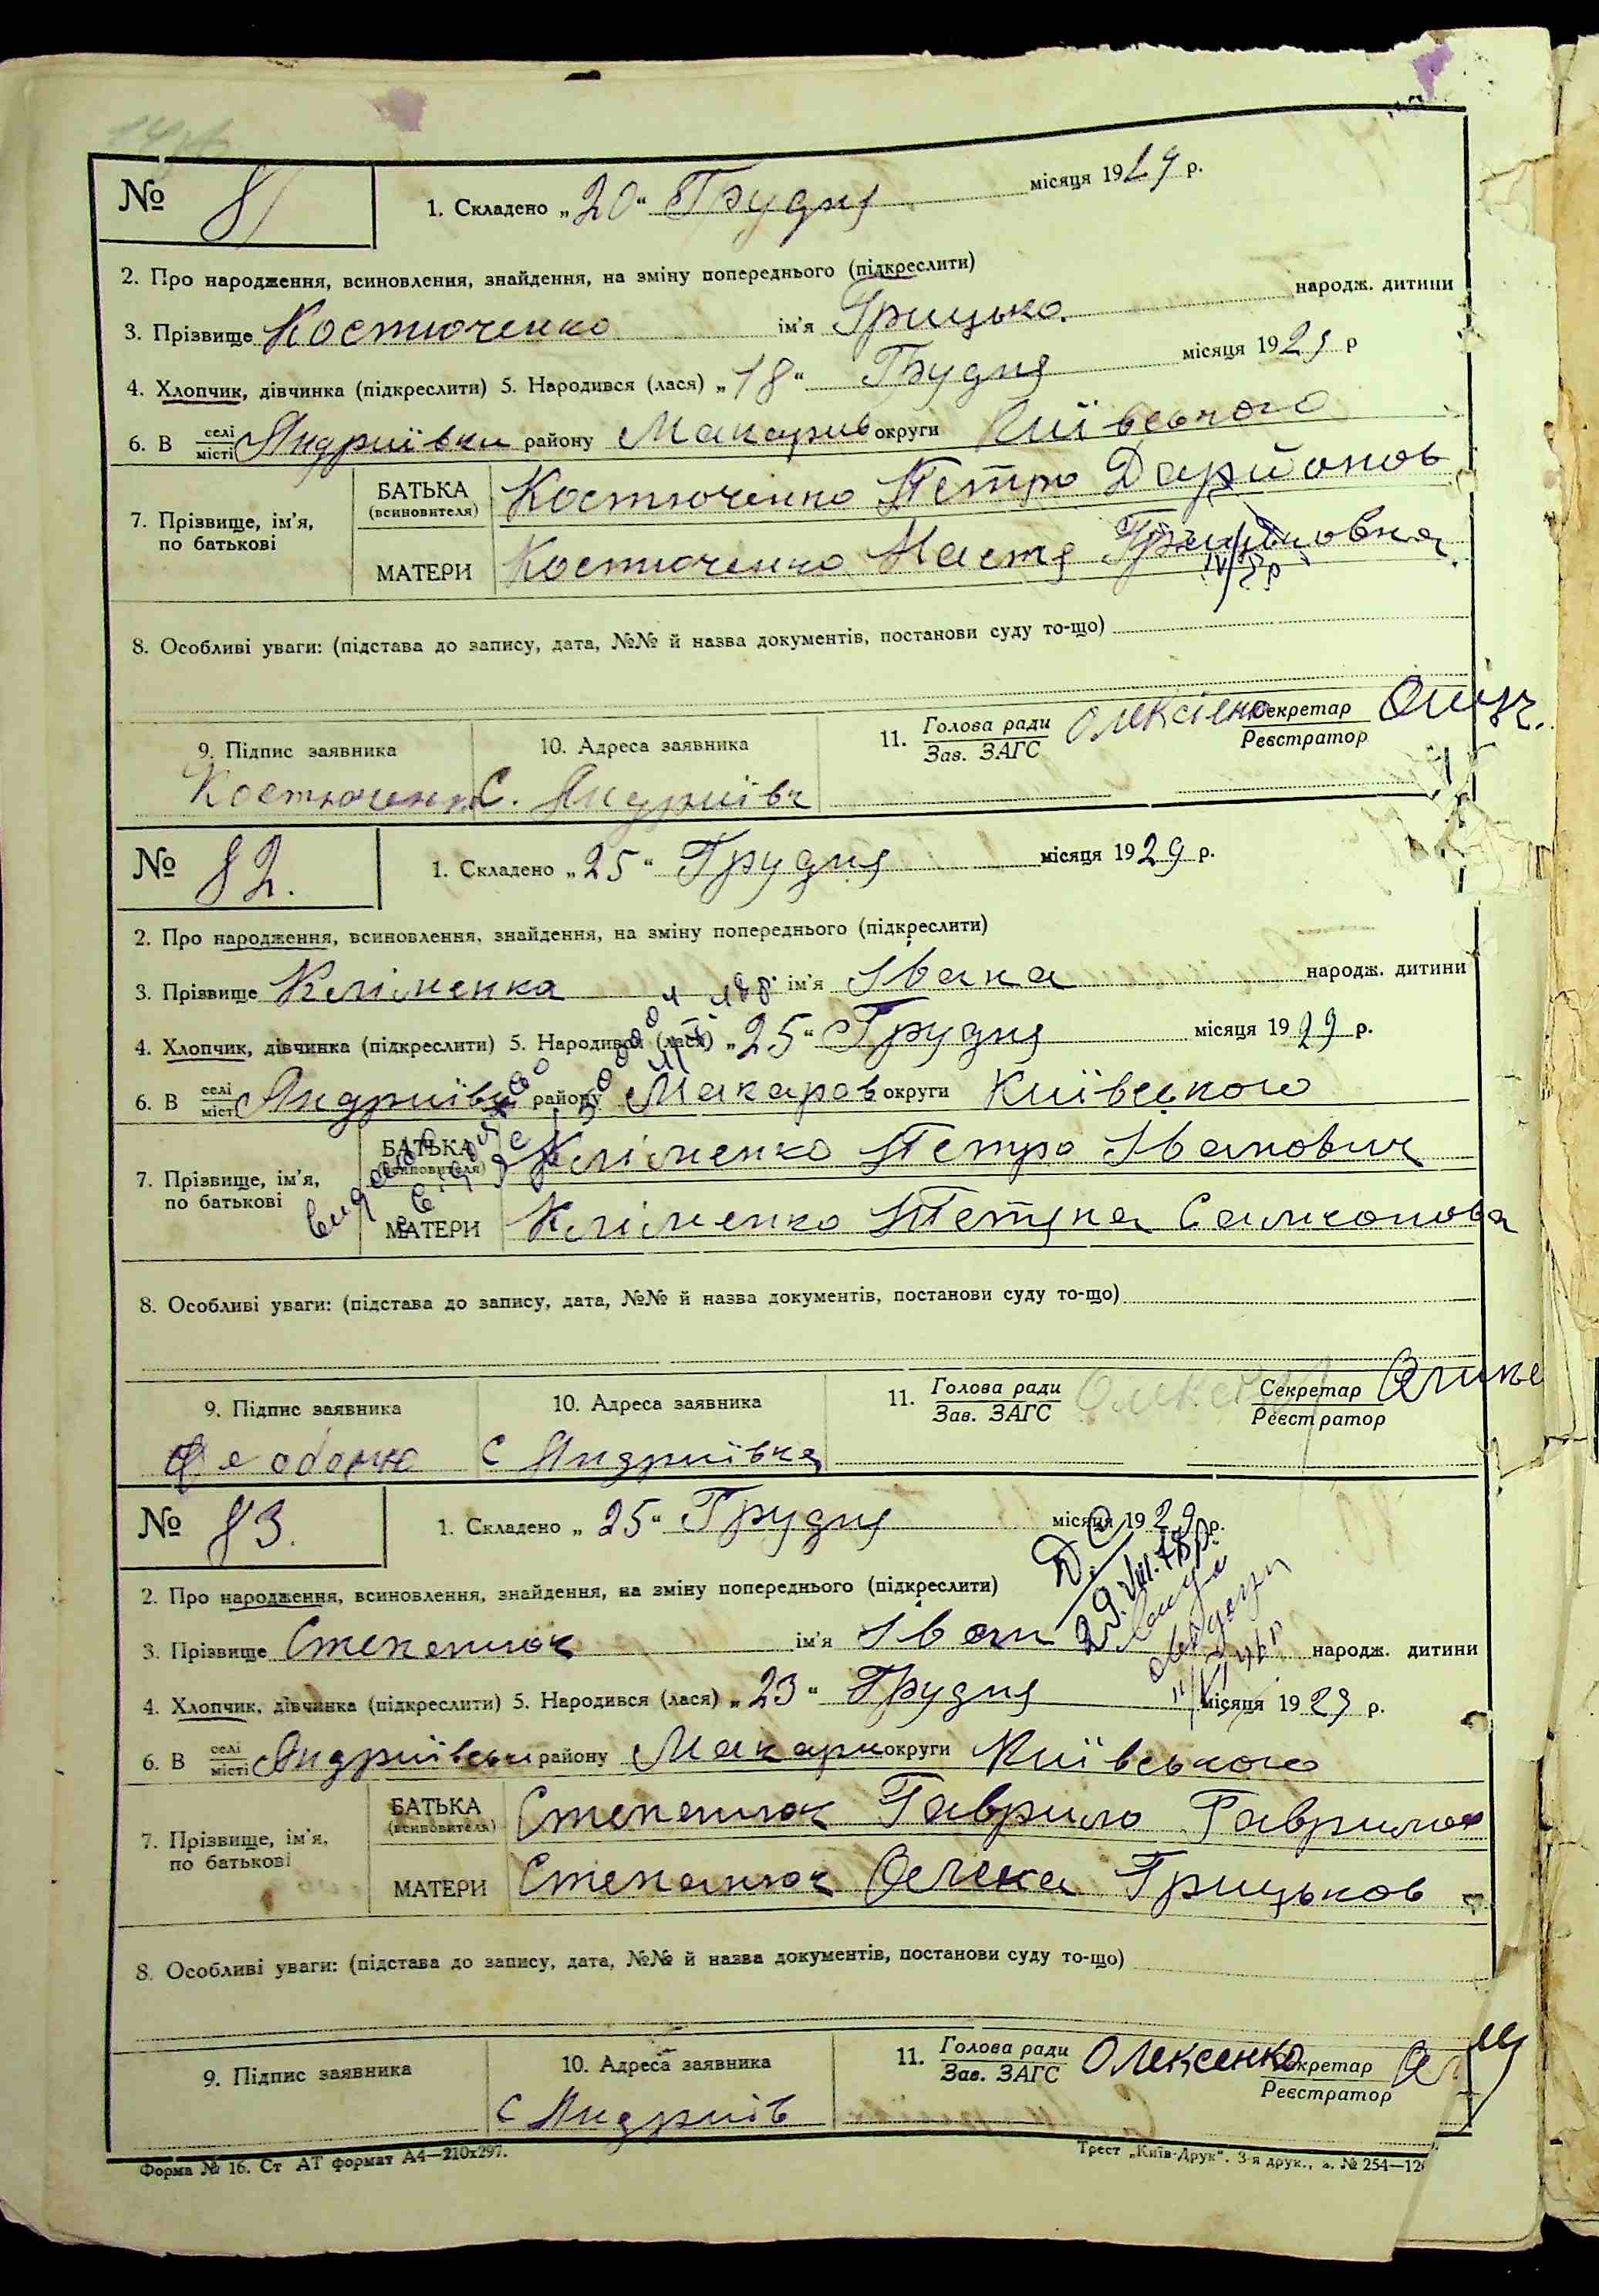 № 81
1. Складено „20“ Грудня місяця 1929 р.
2. Про народження, всиновлення, знайдення, на зміну попереднього (підкреслити)
3. Прізвище Костюченко ім'я Грицько. народж. дитини
4. Хлопчик, дівчинка (підкреслити) 5. Народився (лася) „18“ Грудня місяця 1929 р
6. В селі місті Андриївки району Макарив округи Київського
7. Прізвище, ім'я, по батькові
БАТЬКА (всиновителя) Костюченко Петро
МАТЕРИ Костюченко Настя
8. Особливі уваги: (підстава до запису, дата, №№ й назва документів, постанови суду то-що)
9. Підпис заявника 10. Адреса заявника 11. Голова ради Зав. ЗАГС Секретар Реєстратор
Костюченк С. Андриївк
№ 82.
1. Складено „25“ Грудня місяця 1929 р.
2. Про народження, всиновлення, знайдення, на зміну попереднього (підкреслити)
3. Прізвище Кліменка ім'я Івана народж. дитини
4. Хлопчик, дівчинка (підкреслити) 5. Народився (лася) „25“ Грудня місяця 1929 р.
6. В селі місті Андриївка району Макаров округи Київського
7. Прізвище, ім'я, по батькові
БАТЬКА (всиновителя) Кліменко Петро Іванович
МАТЕРИ Кліменко Тетяна Самсонова
8. Особливі уваги: (підстава до запису, дата, №№ й назва документів, постанови суду то-що)
9. Підпис заявника 10. Адреса заявника 11. Голова ради Зав. ЗАГС Секретар Реєстратор
с Андриївка
№ 83.
1. Складено „25“ Грудня місяця 1929 р.
2. Про народження, всиновлення, знайдення, на зміну попереднього (підкреслити)
3. Прізвище Степанюк ім'я Іван народж. дитини
29.VIII.78р.
4. Хлопчик, дівчинка (підкреслити) 5. Народився (лася) „23“ Грудня місяця 1929 р.
6. В селі місті Андриївськи району Макари округи Київського
7. Прізвище, ім'я, по батькові
БАТЬКА (всиновителя) Степанюк Гаврило Гаврилов
МАТЕРИ Степанюк Олена Грицьков
8. Особливі уваги: (підстава до запису, дата, №№ й назва документів, постанови суду то-що)
9. Підпис заявника 10. Адреса заявника 11. Голова ради Зав. ЗАГС Олексенко Секретар Реєстратор
с Андриів
Форма № 16. Ст АТ формат А4—210х297.
Трест „Київ-Друк“. 3-я друк., з. № 254—12